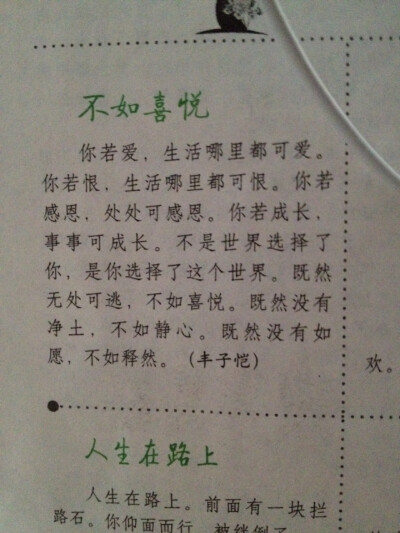 不如喜悦
你若爱，生活哪里都可爱。
你若恨，生活哪里都可恨。你若
感恩，处处可感恩。你若成长，
事事可成长。不是世界选择了
你，是你选择了这个世界。既然
无处可逃，不如喜悦。既然没有
净土，不如静心。既然没有如
愿，不如释然。（丰子恺）
欢。
人生在路上
人生在路上。前面有一块拦
路石。你仰面而行，被绊倒了